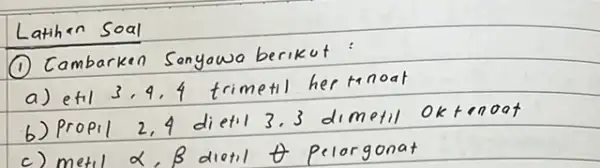 Latihan Soal
① Cambarkan Sanyawa berikut :
a) etil 3, 4, 4 trimetil heptanoat
b) Propil 2, 4 dietil 3. 3 dimetil Oktanoat
c) metil α, β dietil θ Pelargonat